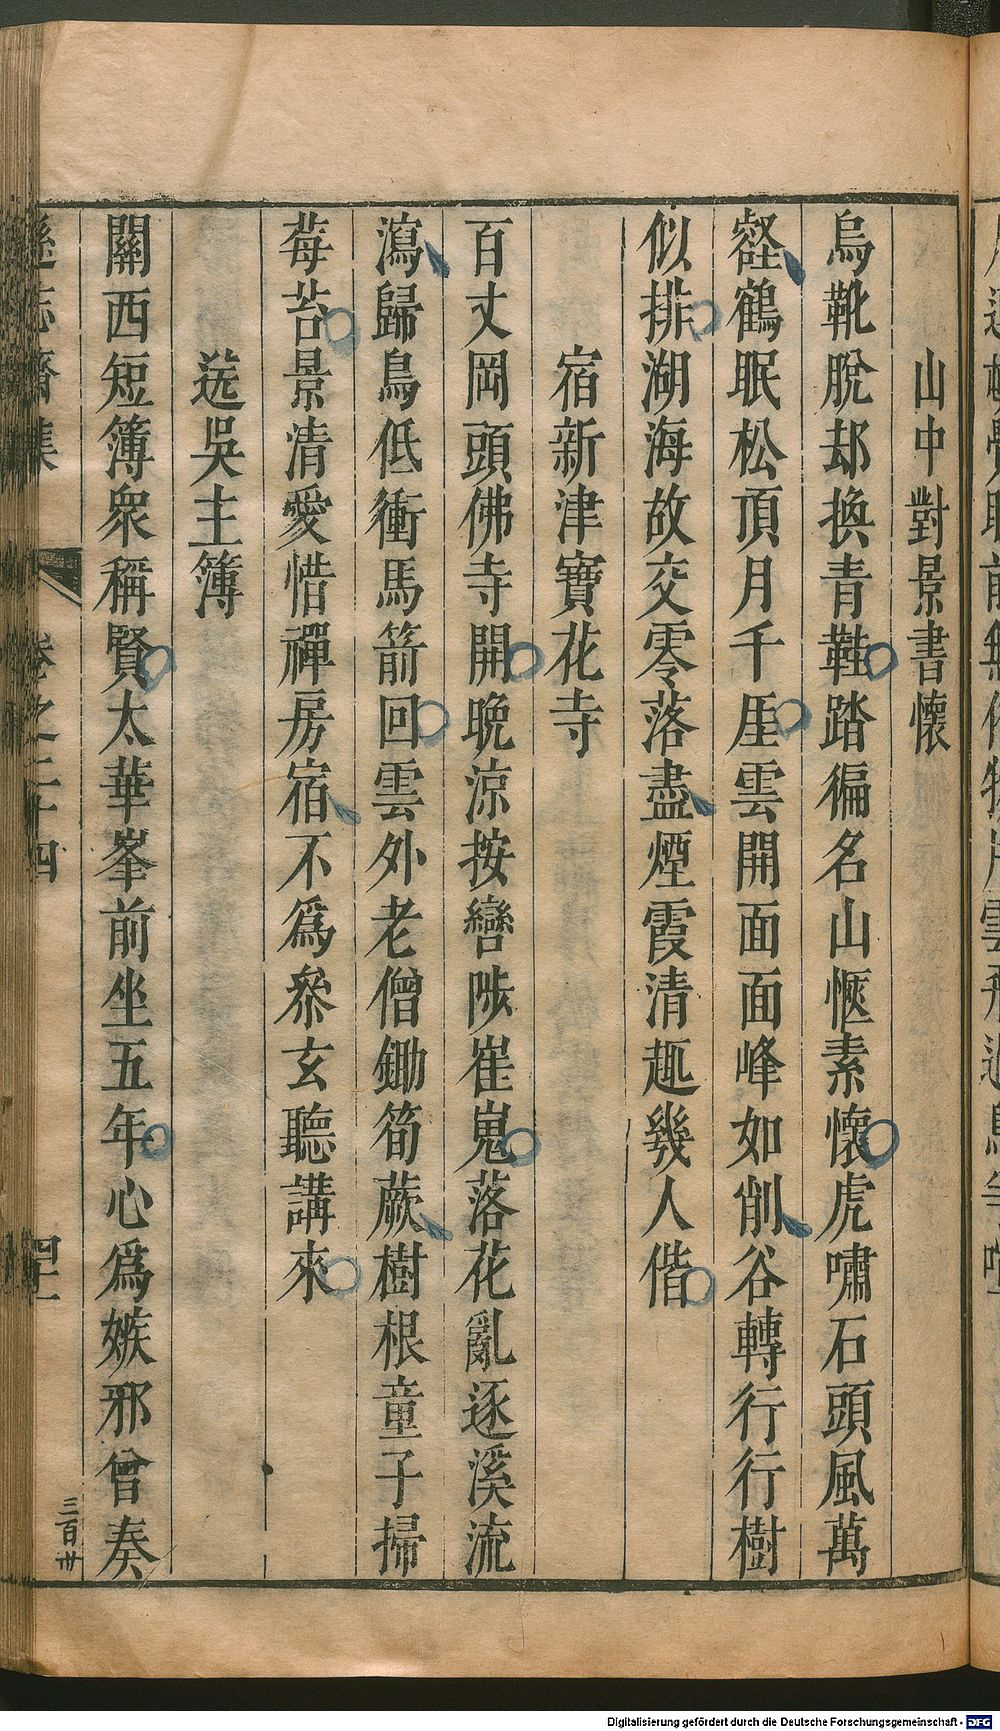 山中對景書懷
烏靴脫却換青鞋踏徧名山愜素懷虎嘯石頭風萬
壑鶴眠松頂月千厓雲開面面峰如削谷轉行行樹
似排湖海故交零落盡煙霞清趣幾人偕
宿新津寶花寺
百丈岡頭佛寺開晚涼按轡陟崔嵬落花亂逐溪流
瀉歸鳥低衝馬箭回雲外老僧鋤筍蕨樹根童子掃
莓苔景清愛惜禪房宿不爲叅玄聽講來
送吳主簿
關西短簿衆稱賢太華峯前坐五年心爲嫉邪曾奏
遜志齋集
卷之二十四
三百卅
Digitalisierung gefördert durch die Deutsche Forschungsgemeinschaft - DFG